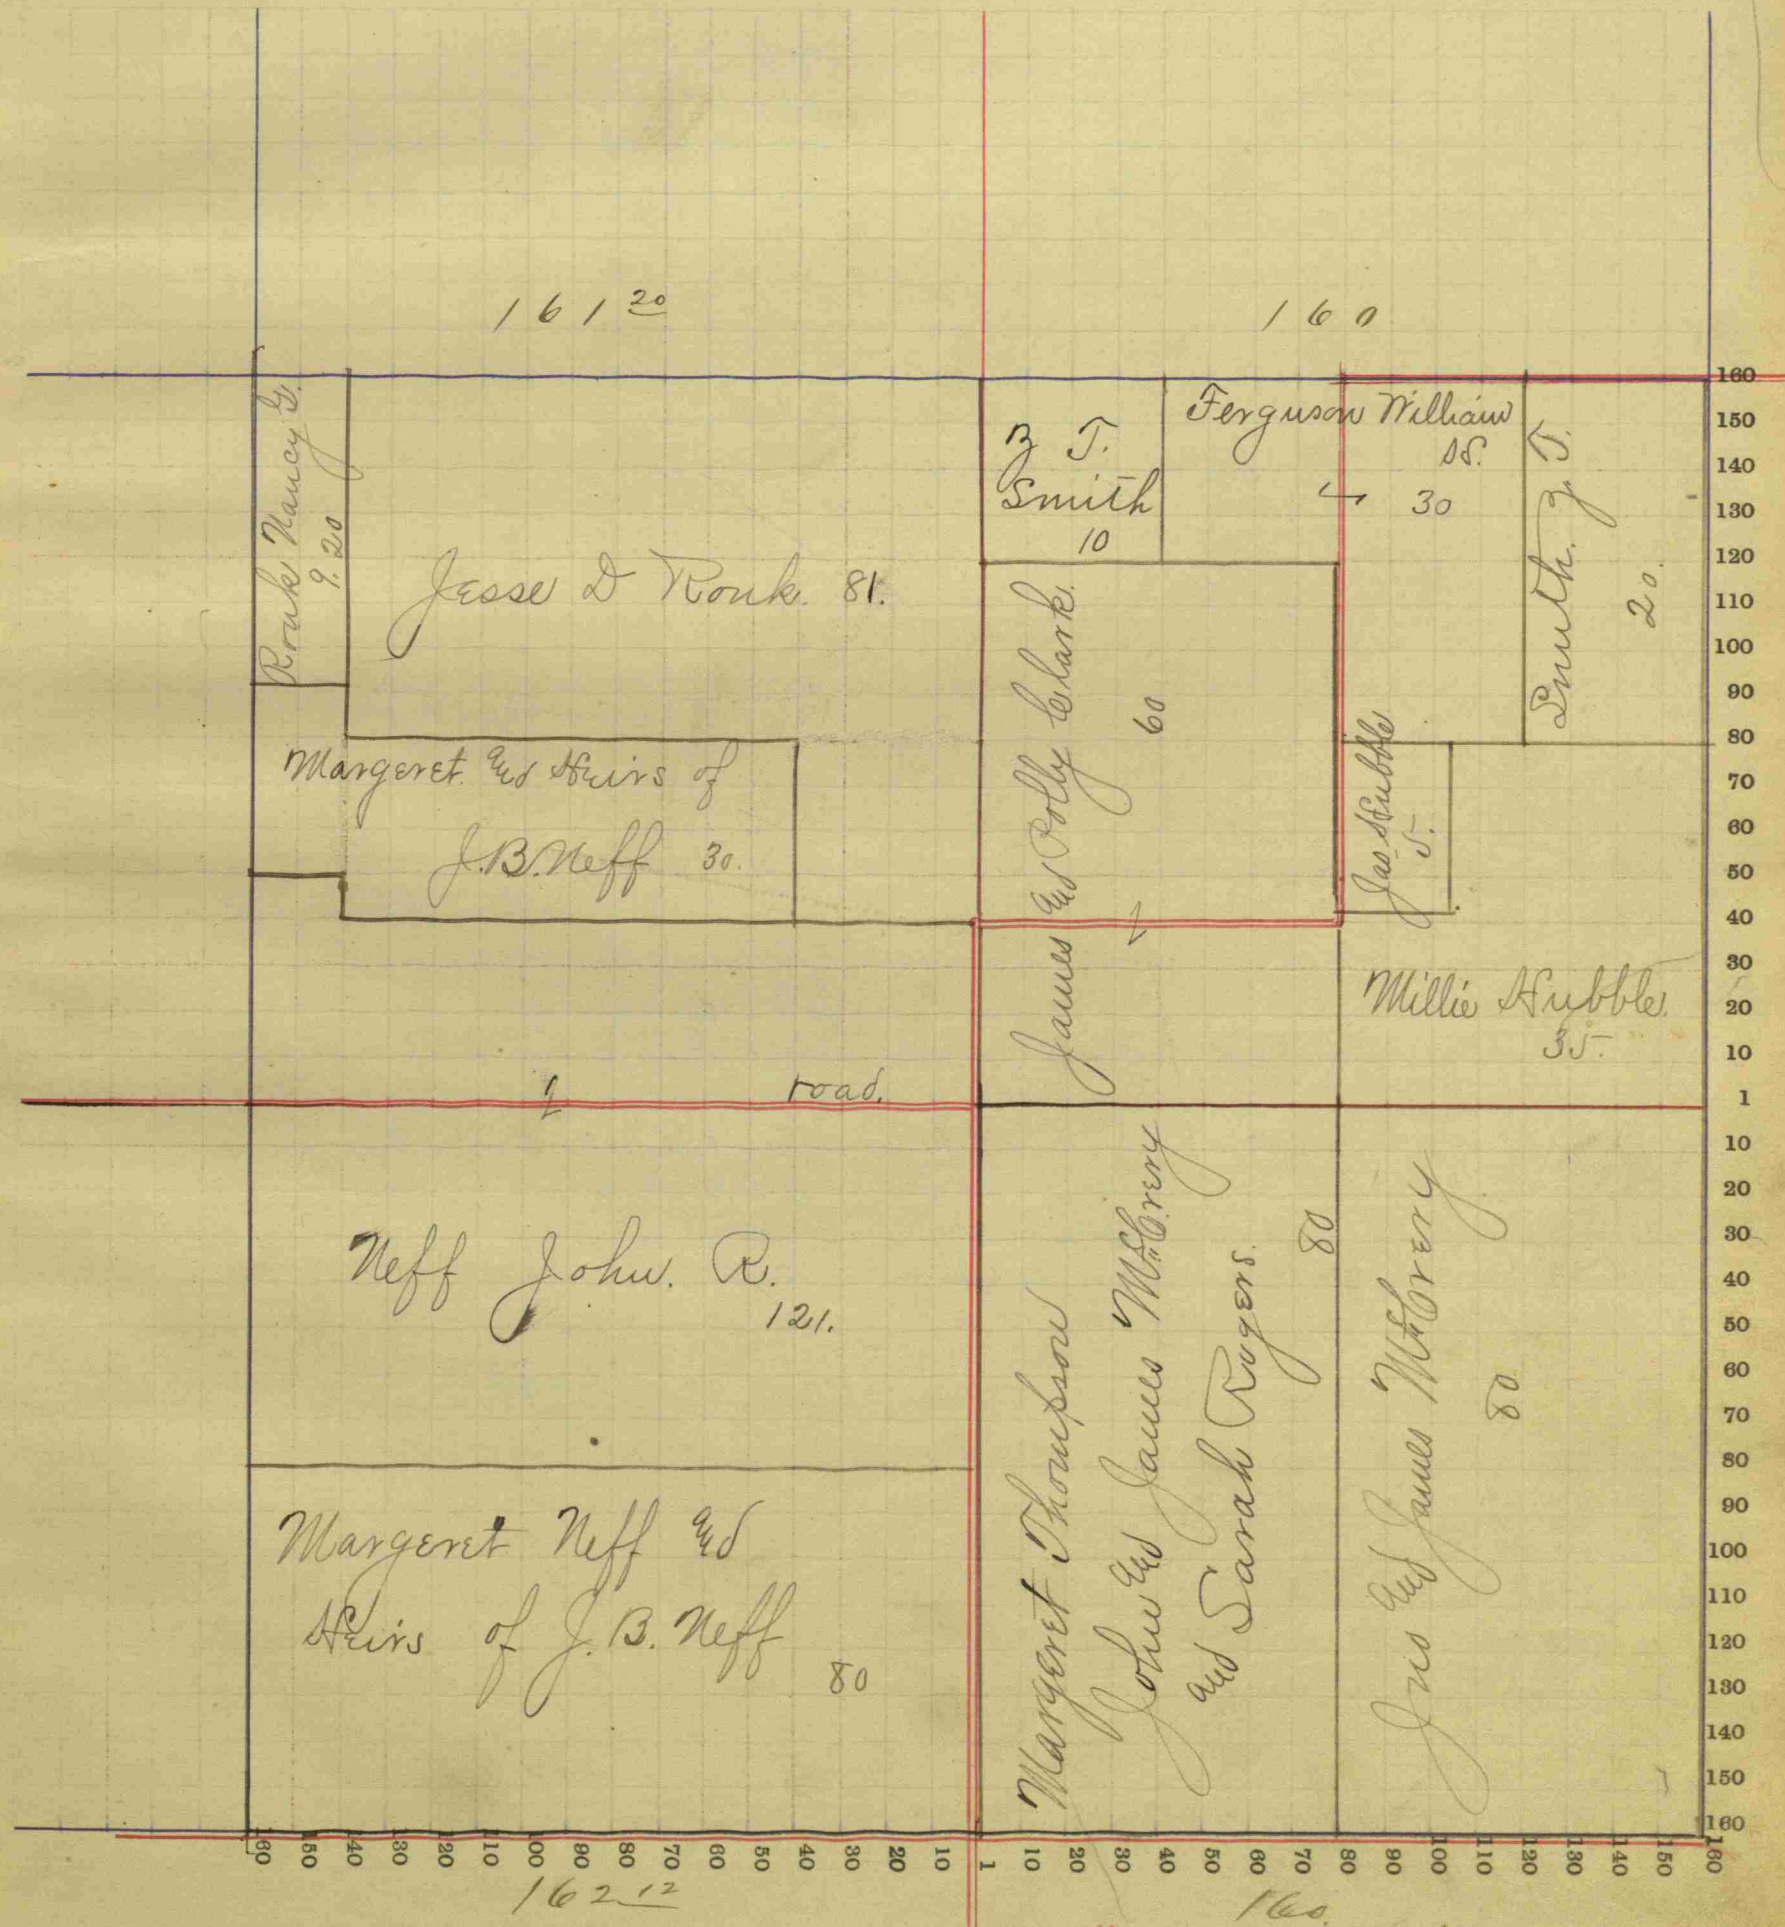 161 20
160
Ronk Nancy G.
9.20
Jesse D Ronk. 81.
Z T.
Smith
10
Ferguson William
30
Smith. Z. T.
20.
James and Polly Clark.
60
Margeret. and Heirs of
J.B. Neff 30.
Jas Hubble
5.
Millie Hubble.
35.
road.
Neff John. R.
121.
Margeret Neff and
Heirs of J. B. Neff
80
Margeret Thompson
John and James McCrery
and Sarah Rogers.
80
Jno and James McCrery
80
160
150
140
130
120
110
100
90
80
70
60
50
40
30
20
10
1
10
20
30
40
50
60
70
80
90
100
110
120
130
140
150
160
160 150 140 130 120 110 100 90 80 70 60 50 40 30 20 10 1 10 20 30 40 50 60 70 80 90 100 110 120 130 140 150 160
162 12
160.